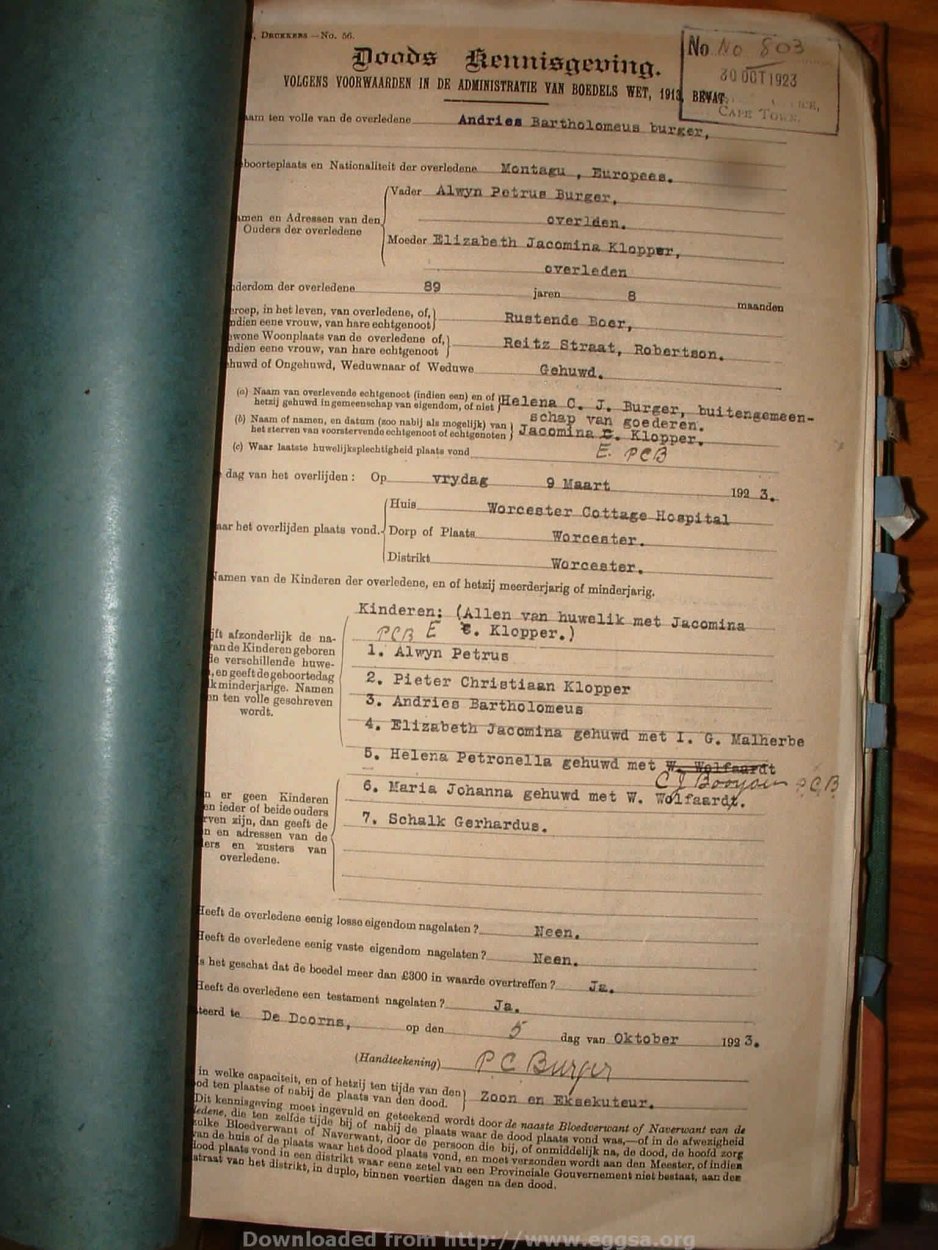 , DRUKKERS —No. 56.
Doods Kennisgeving.
VOLGENS VOORWAARDEN IN DE ADMINISTRATIE VAN BOEDELS WET, 1913, BEVAT
No No 803
30 OCT 1923
CAPE TOWN.
aam ten volle van de overledene Andries Bartholomeus burger,
boorteplaats en Nationaliteit der overledene Montagu , Europees.
amen en Adressen van den Ouders der overledene
Vader Alwyn Petrus Burger,
overlden.
Moeder Elizabeth Jacomina Klopper,
overleden
derdom der overledene 89 jaren 8 maanden
eroep, in het leven, van overledene, of,
ndien eene vrouw, van hare echtgenoot
Rustende Boer,
wone Woonplaats van de overledene of,
ndien eene vrouw, van hare echtgenoot
Reitz Straat, Robertson.
huwd of Ongehuwd, Weduwnaar of Weduwe Gehuwd.
(a) Naam van overlevende echtgenoot (indien een) en of
hetzij gehuwd in gemeenschap van eigendom, of niet
Helena C. J. Burger, buitengemeen-
schap van goederen.
(b) Naam of namen, en datum (zoo nabij als mogelijk) van
het sterven van voorstervende echtgenoot of echtgenoten
Jacomina C. Klopper.
E. PCB
(c) Waar laatste huwelijksplechtigheid plaats vond
dag van het overlijden: Op vrydag 9 Maart 1923.
aar het overlijden plaats vond.
Huis Worcester Cottage Hospital
Dorp of Plaats Worcester.
Distrikt Worcester.
Namen van de Kinderen der overledene, en of hetzij meerderjarig of minderjarig.
Kinderen: (Allen van huwelik met Jacomina
PCB E C. Klopper.)
ijft afzonderlijk de na-
van de Kinderen geboren
de verschillende huwe-
, en geeft de geboortedag
k minderjarige. Namen
en ten volle geschreven
wordt.
1. Alwyn Petrus
2. Pieter Christiaan Klopper
3. Andries Bartholomeus
4. Elizabeth Jacomina gehuwd met I. G. Malherbe
5. Helena Petronella gehuwd met W. Wolfaardt
C J Booysen P.C.B
6. Maria Johanna gehuwd met W. Wolfaardt.
7. Schalk Gerhardus.
n er geen Kinderen
en ieder of beide ouders
rven zijn, dan geeft de
n en adressen van de
ers en zusters van
overledene.
Heeft de overledene eenig losse eigendom nagelaten? Neen.
Heeft de overledene eenig vaste eigendom nagelaten? Neen.
s het geschat dat de boedel meer dan £300 in waarde overtreffen? Ja.
Heeft de overledene een testament nagelaten? Ja.
teerd te De Doorns, op den 5 dag van Oktober 1923.
(Handteekening) P C Burger
in welke capaciteit, en of hetzij ten tijde van den
ood ten plaatse of nabij de plaats van den dood.
Zoon en Eksekuteur.
Dit kennisgeving moet ingevuld en geteekend wordt door de naaste Bloedverwant of Naverwant van de
ledene, die ten zelfde tijde bij of nabij de plaats waar de dood plaats vond was,—of in de afwezigheid
zulke Bloedverwant of Naverwant, door de persoon die bij, of onmiddelijk na, de dood, de hoofd zorg
van de huis of de plaats waar het dood plaats vond, en moet verzonden wordt aan den Meester, of indien
dood plaats vond in een distrikt waar eene zetel van een Provinciale Gouvernement niet bestaat, aan den
straat van het distrikt, in duplo, binnen veertien dagen na den dood.
Downloaded from http://www.eggsa.org